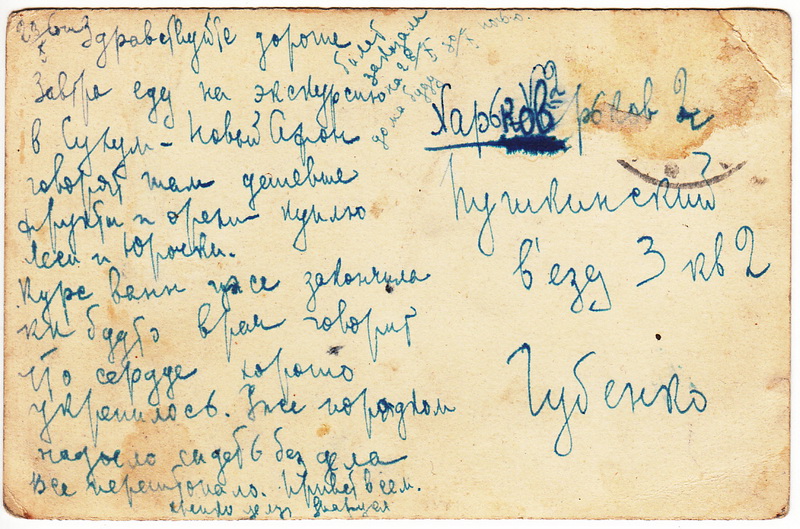 Здравствуйте дорогие
Завтра еду на экскурсию
в Сухум - Новый Афон
говорят там дешевле
фрукты и орехи - куплю
Леси и Юрочки.
Курс ванн уже закончила
врач говорит
что сердце хорошо
укрепилось. Уже порядком
надоело сидеть без дела
все перештопала. Привет всем.
билет
заказала
на 28/5 30/5
дома буду
Харьков 2
Пушкинский
в'езд 3 кв 2
Губенко